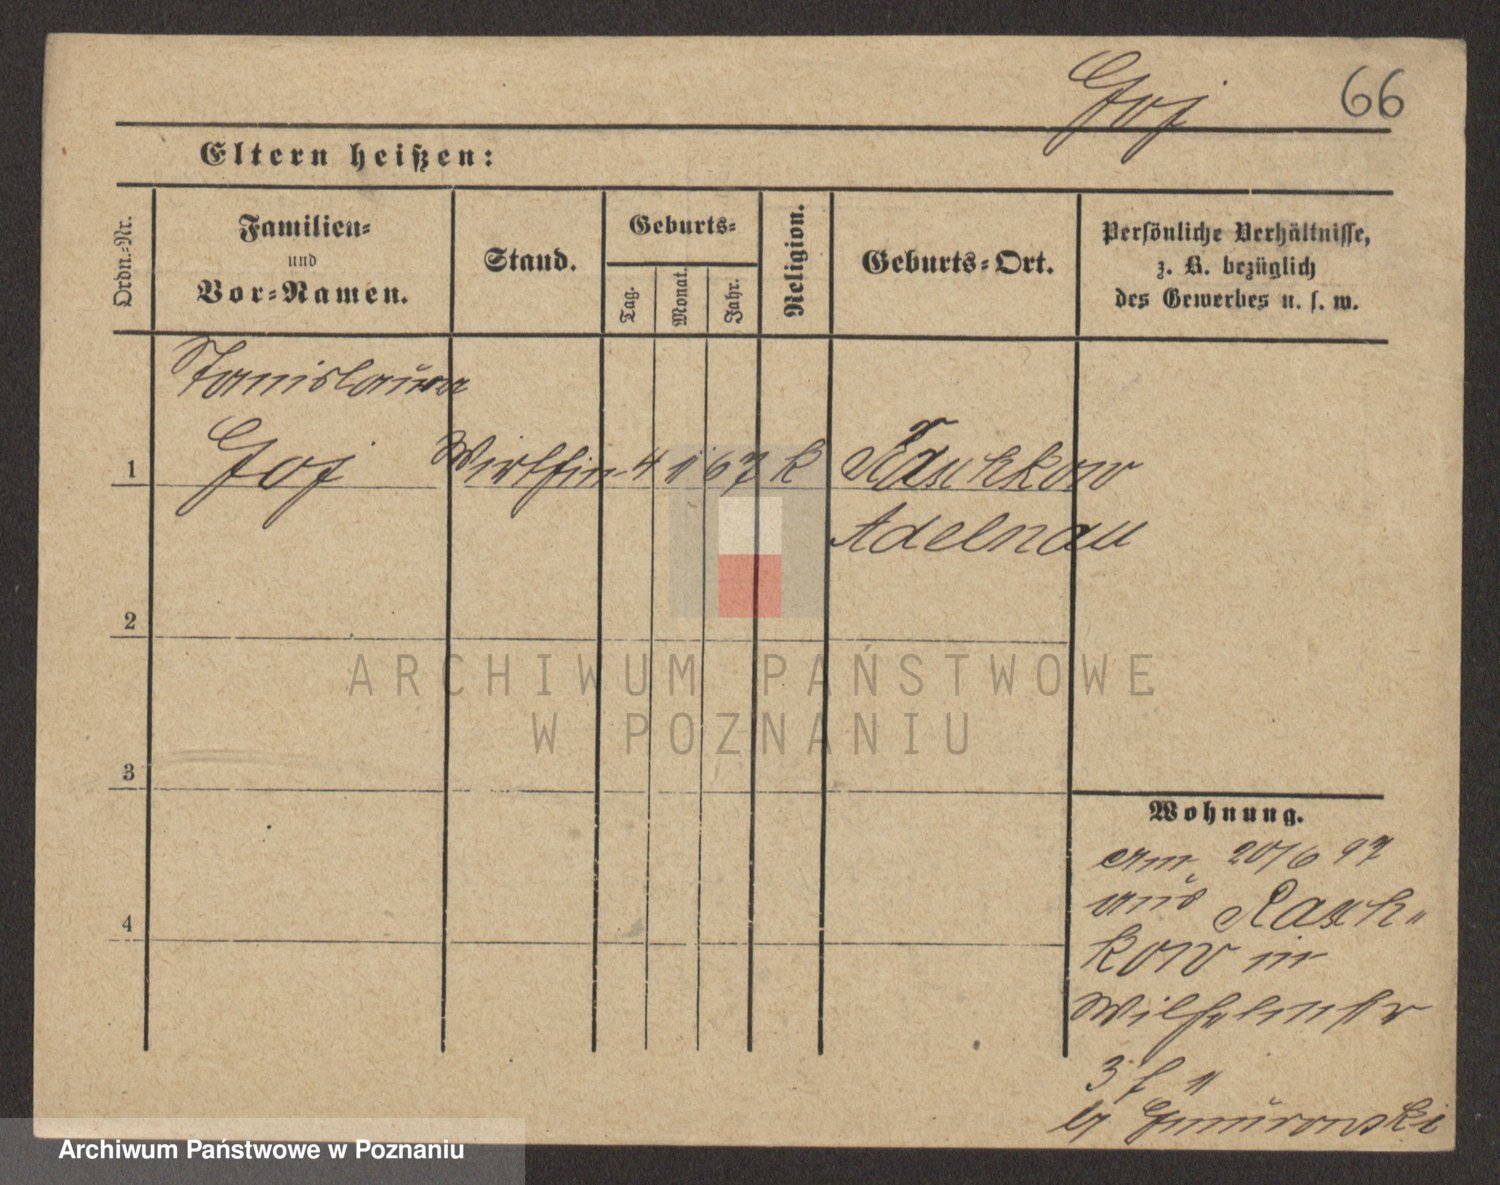 Goj 66
Eltern heißen:
Ordn.-Nr.
Familien-
und
Vor-Namen.
Stand.
Geburts-
Tag.
Monat.
Jahr.
Religion.
Geburts-Ort.
Persönliche Verhältnisse,
z. B. bezüglich
des Gewerbes u. s. w.
Stanislawa
1 Goj Wirthin 4 1 67 k Raschkow
Adelnau
2
ARCHIWUM PAŃSTWOWE
W POZNANIU
3
Wohnung.
am 20/6 97
aus Rasch-
4
kow in
Wilhelmstr
3
Archiwum Państwowe w Poznaniu